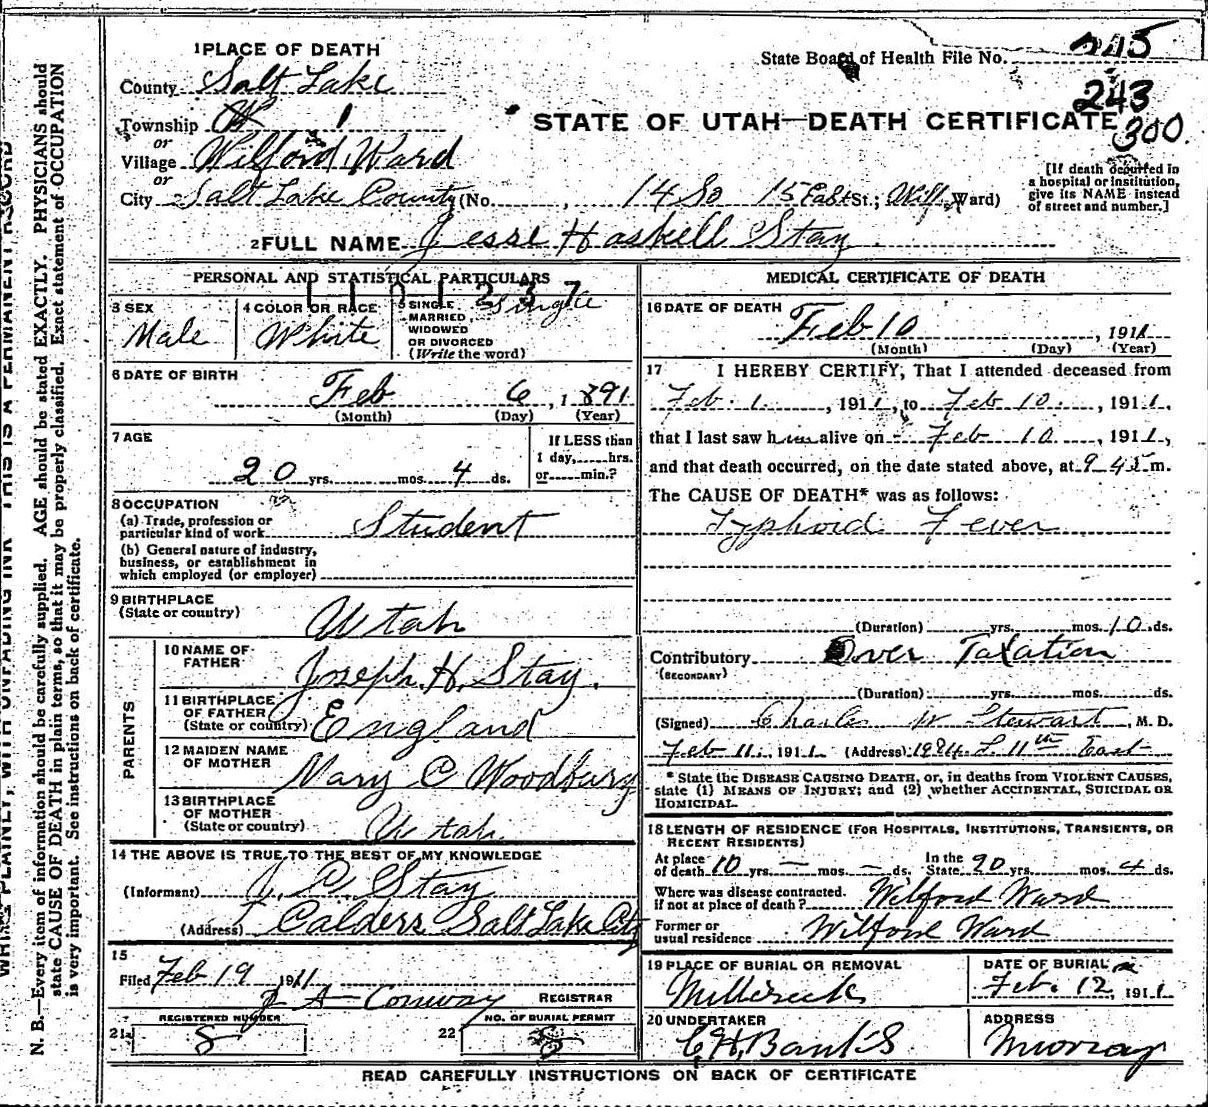 1 PLACE OF DEATH
State Board of Health File No. 245
County Salt Lake
243
Township 1
STATE OF UTAH—DEATH CERTIFICATE
300.
or
Village Wilford Ward
or
City Salt Lake County (No. 14 So 15 East St.; Wilf. Ward)
[If death occurred in a hospital or institution, give its NAME instead of street and number.]
2 FULL NAME Jesse Haskell Stay
PERSONAL AND STATISTICAL PARTICULARS
1101237
3 SEX
Male
4 COLOR OR RACE
White
5 SINGLE, MARRIED, WIDOWED OR DIVORCED (Write the word)
Single
6 DATE OF BIRTH
Feb 6, 1891
(Month) (Day) (Year)
7 AGE
20 yrs. mos. 4 ds.
If LESS than 1 day, hrs. or min.?
8 OCCUPATION
(a) Trade, profession or particular kind of work Student
(b) General nature of industry, business, or establishment in which employed (or employer)
9 BIRTHPLACE
(State or country) Utah
PARENTS
10 NAME OF FATHER Joseph H. Stay.
11 BIRTHPLACE OF FATHER (State or country) England
12 MAIDEN NAME OF MOTHER Mary C Woodbury
13 BIRTHPLACE OF MOTHER (State or country) Utah
14 THE ABOVE IS TRUE TO THE BEST OF MY KNOWLEDGE
(Informant) Stay
(Address) Calders Salt Lake City
15
Filed Feb 19 1911
J A Conway REGISTRAR
REGISTERED NUMBER
21 8
NO. OF BURIAL PERMIT
22 8
MEDICAL CERTIFICATE OF DEATH
16 DATE OF DEATH
Feb 10, 1911
(Month) (Day) (Year)
17 I HEREBY CERTIFY, That I attended deceased from
Feb. 1, 1911, to Feb 10., 1911,
that I last saw him alive on Feb 10, 1911,
and that death occurred, on the date stated above, at 9-45 m.
The CAUSE OF DEATH* was as follows:
Typhoid Fever
(Duration) yrs. mos. 10 ds.
Contributory (SECONDARY) Over Taxation
(Duration) yrs. mos. ds.
(Signed) Charles W Stewart, M. D.
Feb 11. 1911 (Address) 11th East
* State the DISEASE CAUSING DEATH, or, in deaths from VIOLENT CAUSES, state (1) MEANS OF INJURY; and (2) whether ACCIDENTAL, SUICIDAL OR HOMICIDAL.
18 LENGTH OF RESIDENCE (FOR HOSPITALS, INSTITUTIONS, TRANSIENTS, OR RECENT RESIDENTS)
At place of death 10 yrs. — mos. — ds. In the State 20 yrs. mos. 4 ds.
Where was disease contracted, if not at place of death? Wilford Ward
Former or usual residence Wilford Ward
19 PLACE OF BURIAL OR REMOVAL
Millcreek
DATE OF BURIAL
Feb. 12, 1911
20 UNDERTAKER
C H Banks
ADDRESS
Murray
READ CAREFULLY INSTRUCTIONS ON BACK OF CERTIFICATE
WRITE PLAINLY, WITH UNFADING INK—THIS IS A PERMANENT RECORD
N. B.—Every item of information should be carefully supplied. AGE should be stated EXACTLY. PHYSICIANS should
state CAUSE OF DEATH in plain terms, so that it may be properly classified. Exact statement of OCCUPATION
is very important. See instructions on back of certificate.